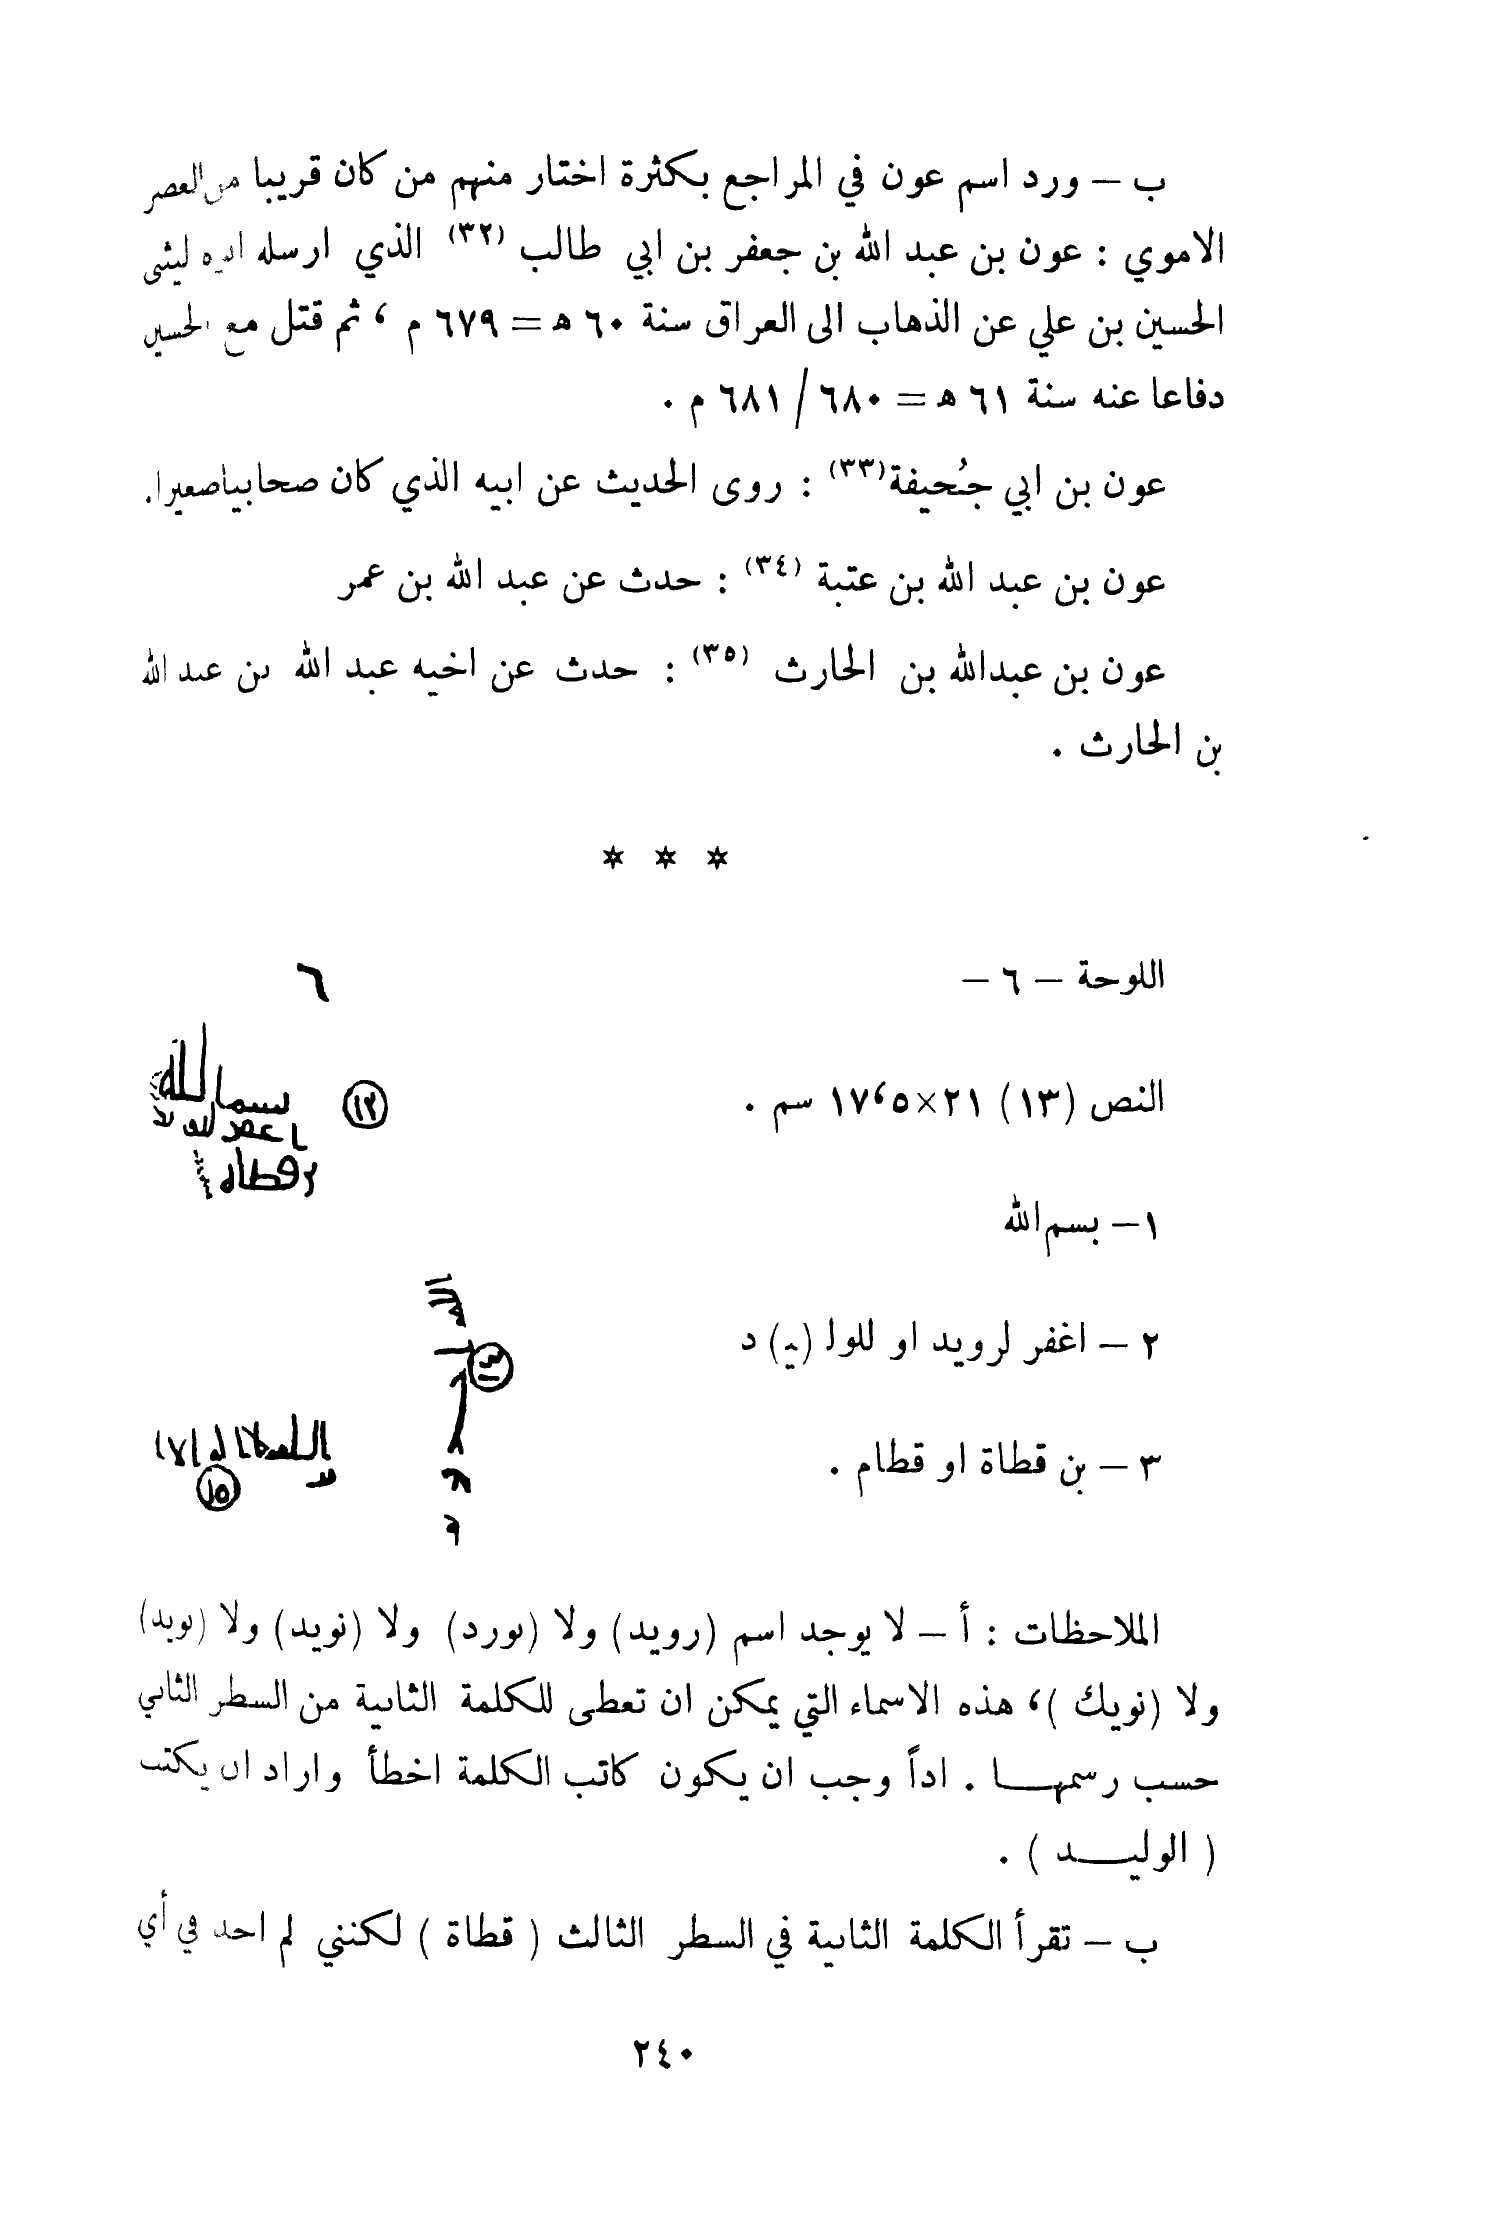 ب – ورد اسم عون في المراجع بكثرة اختار منهم من كان قريبا من العصر
الاموي : عون بن عبد الله بن جعفر بن ابي طالب (٣٢) الذي ارسله ابوه ليثني
الحسين بن علي عن الذهاب الى العراق سنة ٦٠ هـ = ٦٧٩ م ، ثم قتل مع الحسين
دفاعا عنه سنة ٦١ هـ = ٦٨٠ / ٦٨١ م .
عون بن ابي جُحيفة (٣٣) : روى الحديث عن ابيه الذي كان صحابيا صغيرا .
عون بن عبد الله بن عتبة (٣٤) : حدث عن عبد الله بن عمر
عون بن عبدالله بن الحارث (٣٥) : حدث عن اخيه عبد الله بن عبد الله
بن الحارث .
* * *
اللوحة – ٦ –
٦
النص (١٣) ٢١×١٧،٥ سم .
١ – بسم الله
٢ – اغفر لرويد او للول (يـ) د
٣ – بن قطاة او قطام .
بسم الله
١٣
١٥
الملاحظات : أ – لا يوجد اسم (رويد) ولا (ىورد) ولا (نويد) ولا (ىويد)
ولا (نويك )، هذه الاسماء التي يمكن ان تعطى للكلمة الثانية من السطر الثاني
حسب رسمهـــا . اذاً وجب ان يكون كاتب الكلمة اخطأ واراد ان يكتب
( الوليـــد ) .
ب – تقرأ الكلمة الثانية في السطر الثالث ( قطاة ) لكنني لم احد في أي
٢٤٠